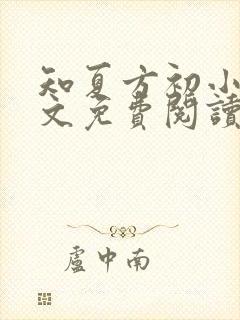 知夏方初小
文免費閱讀
盧中南